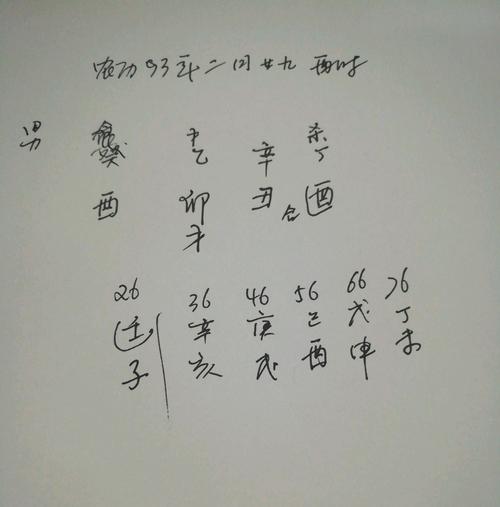 农历93年二月廿九 酉时
才 杀
男 癸 乙 辛 丁
酉 卯 丑 合 酉
才
26 36 46 56 66 76
壬 辛 庚 己 戊 丁
子 亥 戌 酉 申 未